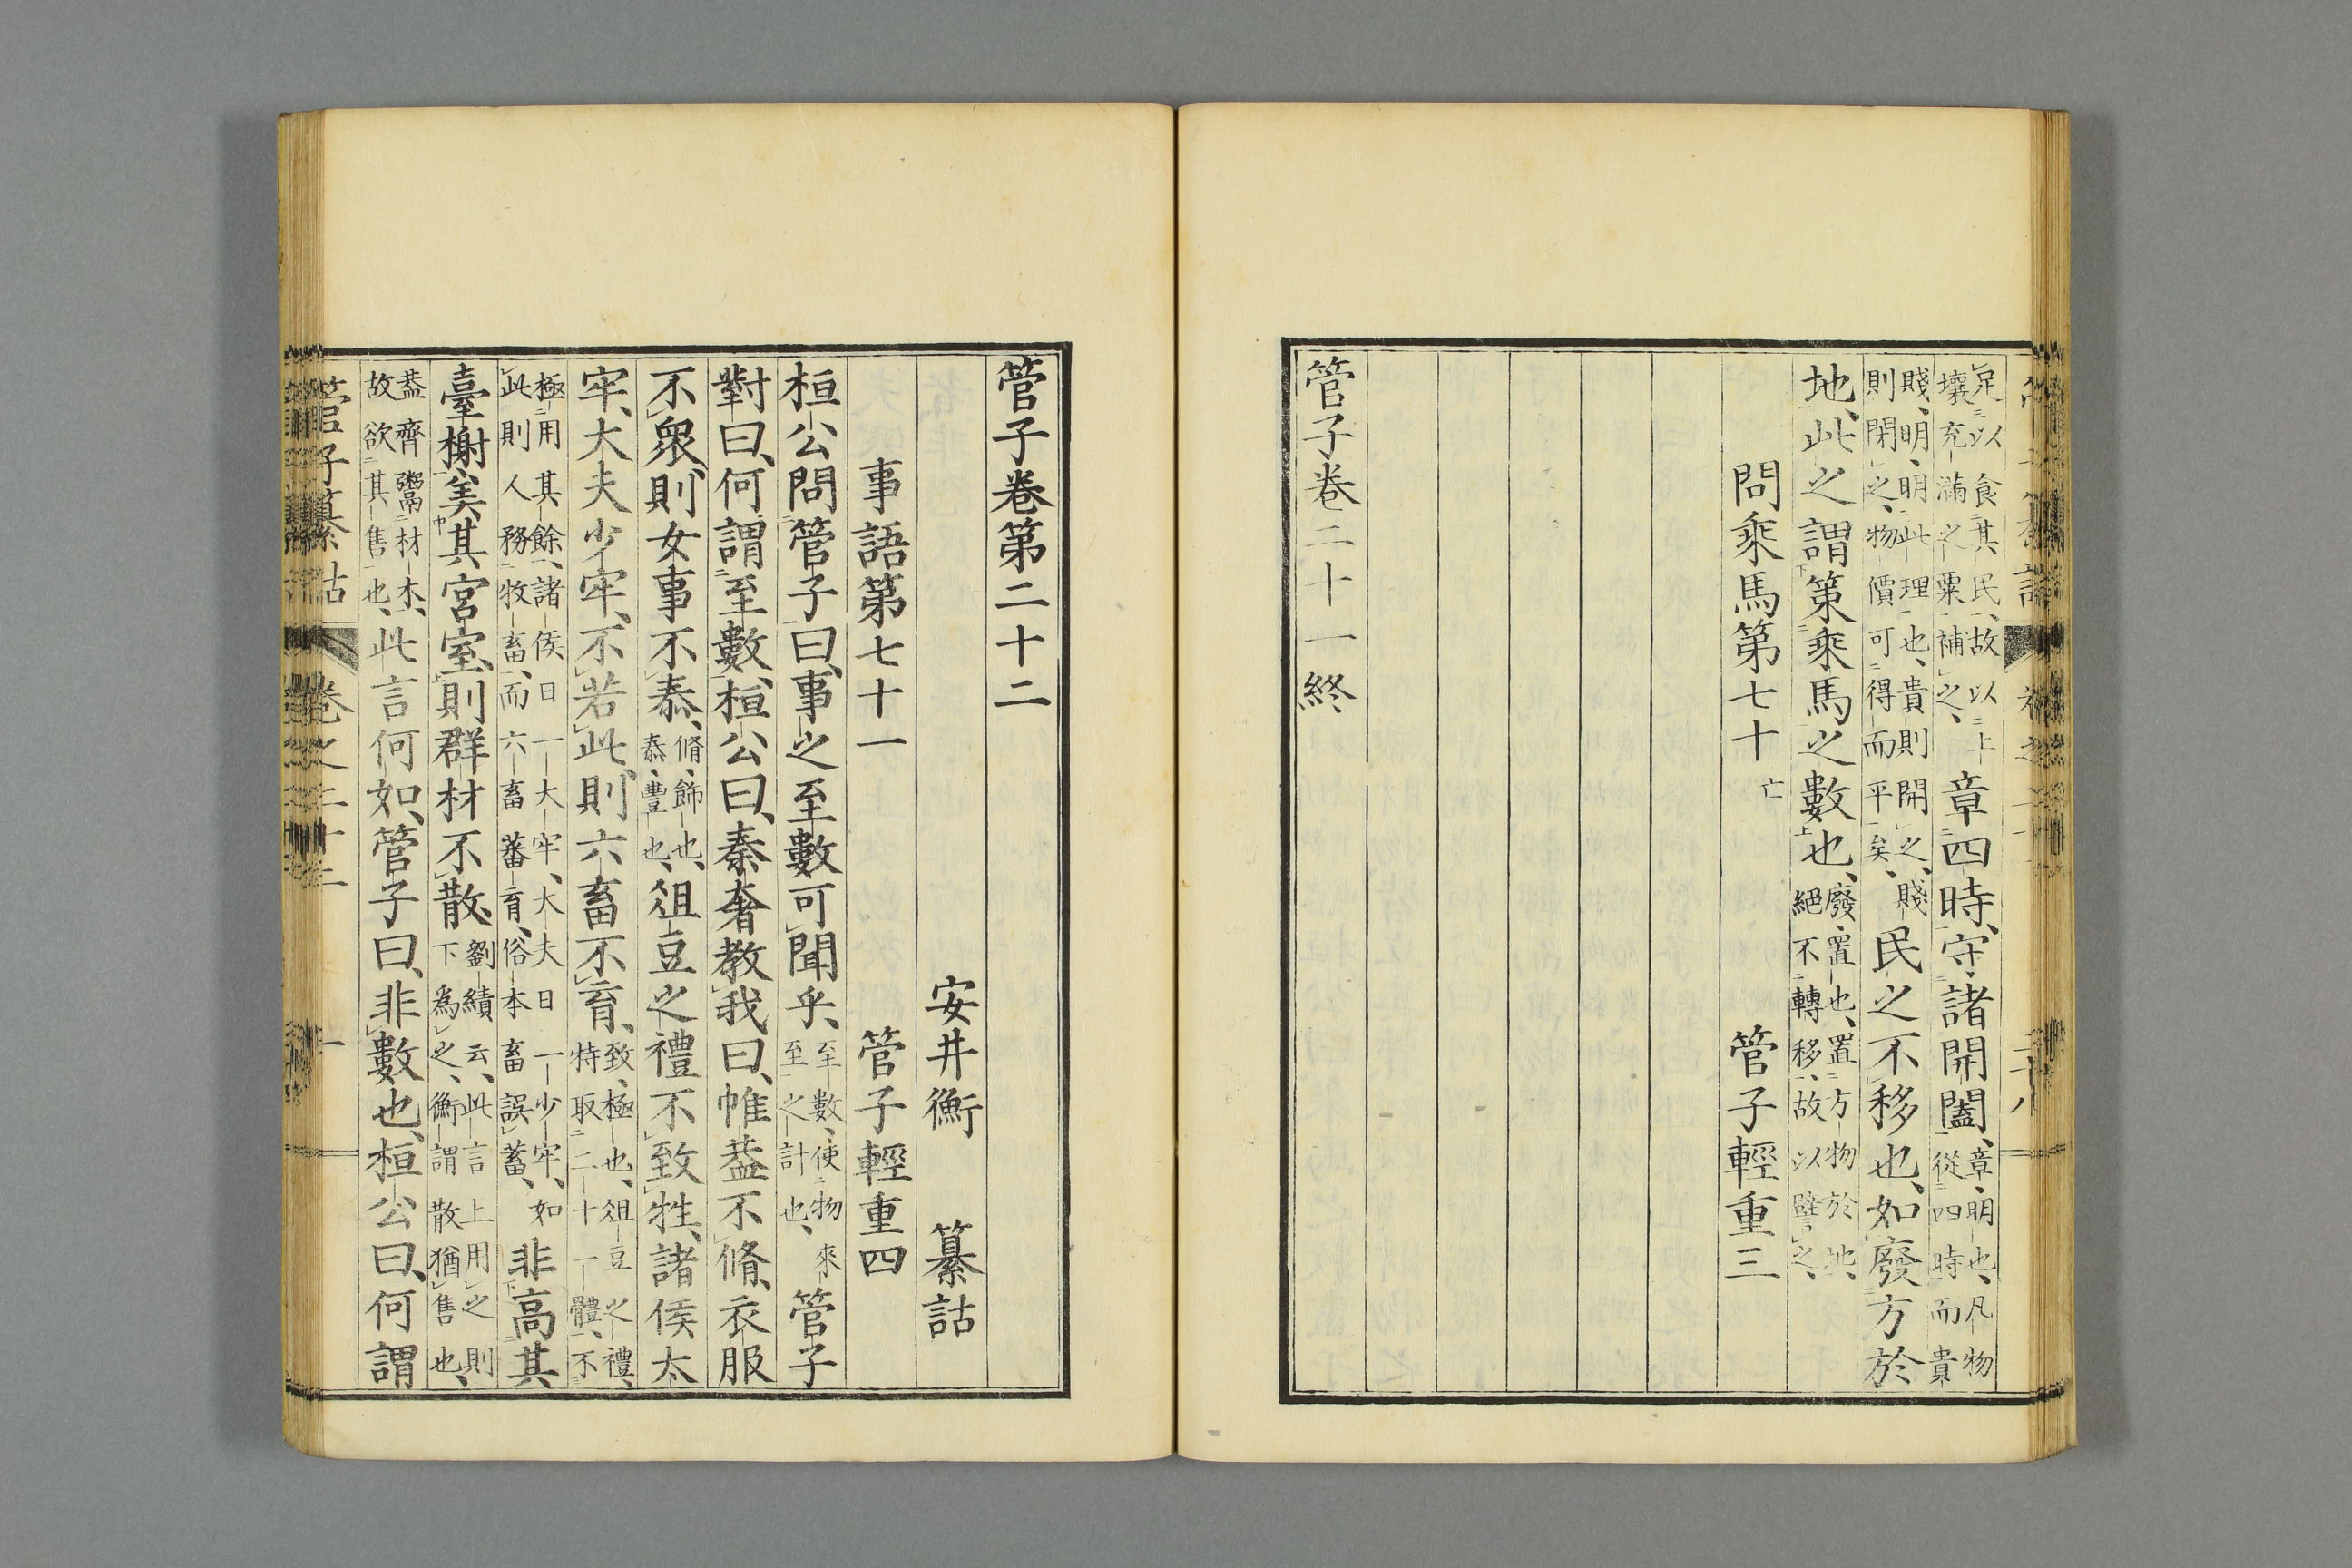 足以食其民、故以上
壤充滿之粟補之、
章四時、守諸開闔、
章、明也、凡物
從四時而貴
賤、明、明此理也、貴則開之、賤
則閉之、物價可得而平矣、
民之不移也、如廢方於
地、此之謂策乘馬之數也、
廢、置也、置方物於地、
絕不轉移、故以譬之、
問乘馬第七十 亡 管子輕重三
管子卷二十一終
管子卷第二十二
安井衡 纂詁
事語第七十一 管子輕重四
桓公問管子曰、事之至數可聞乎、
至數、使物來
至之計也、
管子
對曰、何謂至數、桓公曰、秦奢教我曰、帷葢不脩、衣服
不衆、則女事不泰、
脩、飾也、
泰、豐也、
俎豆之禮不致牲、諸侯太
牢、大夫少牢、不若此、則六畜不育、
致、極也、俎豆之禮、
特取二十一體、不
極用其餘、諸侯曰一大牢、大夫曰一少牢、如
此則人務牧畜、而六畜蕃育、俗本畜誤蓄、
非高其
臺榭、美其宮室、則群材不散、
劉績云、此言上用之則
下為之、衡謂散猶售也、
葢齊鬻材木、
故欲其售也、
此言何如、管子曰、非數也、桓公曰、何謂
管子纂詁 卷之二十二 一